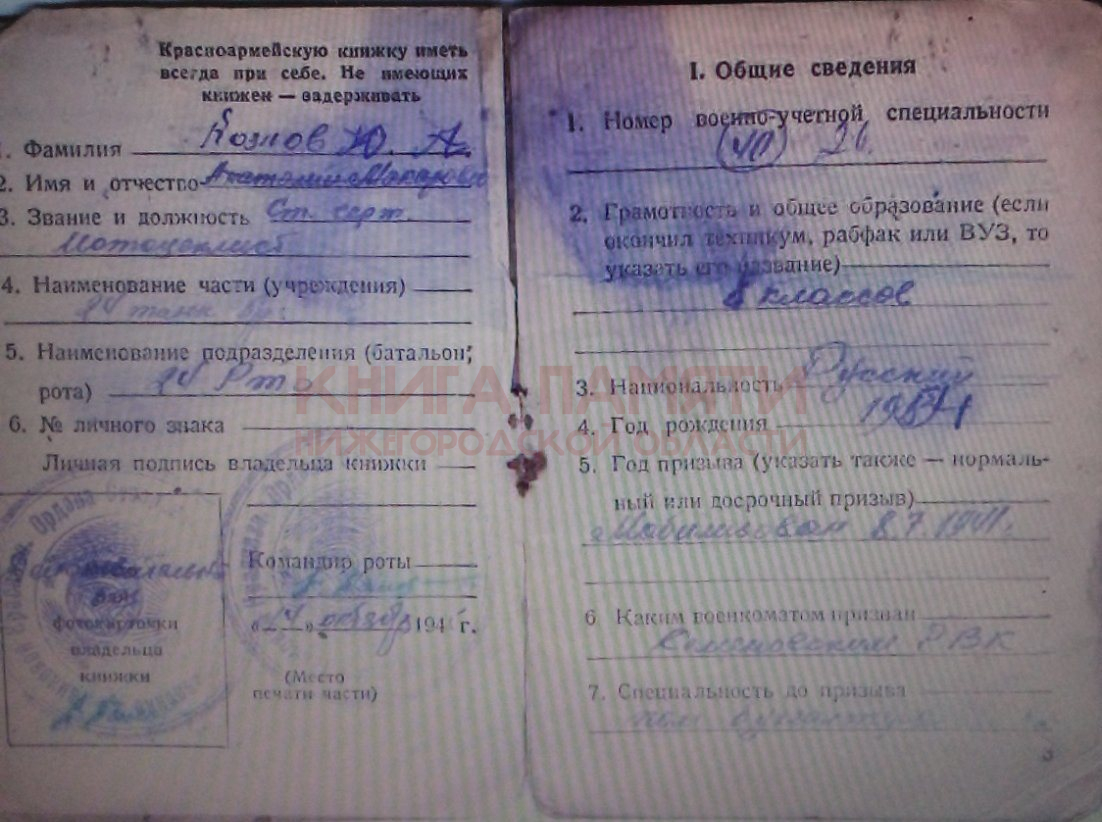 Красноармейскую книжку иметь
всегда при себе. Не имеющих
книжек — задерживать
1. Фамилия Козлов Ю. А.
2. Имя и отчество Анатолий Макарович
3. Звание и должность Ст. серж.
Мотоциклист
4. Наименование части (учреждения)
24 танк
5. Наименование подразделения (батальон,
рота) 24 Рто
6. № личного знака
Личная подпись владельца книжки
фотокарточки
владельца
книжки
Командир роты
«14» октября 194 г.
(Место
печати части)
I. Общие сведения
1. Номер военно-учетной специальности
26.
2. Грамотность и общее образование (если
окончил техникум, рабфак или ВУЗ, то
указать его название)
8 классов
3. Национальность Русский
4. Год рождения
5. Год призыва (указать также — нормаль-
ный или досрочный призыв)
Мобилизован 8.7.1941.
6 Каким военкоматом призван
Семеновским РВК
7. Специальность до призыва
3
КНИГА ПАМЯТИ
НИЖЕГОРОДСКОЙ ОБЛАСТИ